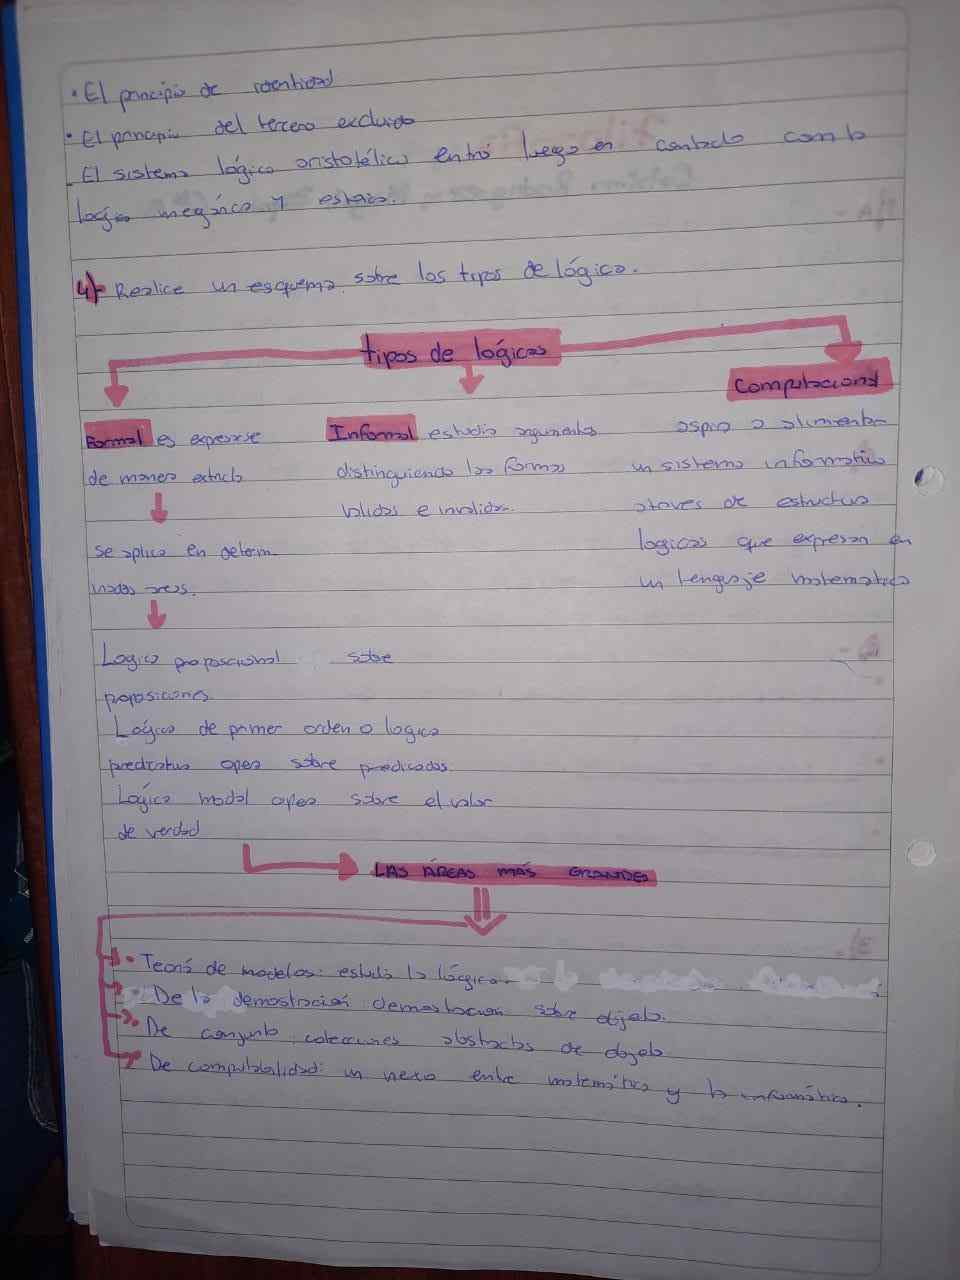 • El principio de identidad
• El principio del tercero excluido
El sistema lógico aristotélico entró luego en contacto con la
logica megárica y estoica.
4)- Realice un esquema sobre los tipos de lógica.
tipos de lógicas
Computacional
Formal es expresarse
de manera estricta
se aplica en determi
nadas areas.
Informal estudia argumentos
distinguiendo las formas
validas e invalidas.
aspira a alimentar
un sistema informatico
atraves de estructuras
logicas que expresan en
un lenguaje matematico
Logica proposcional sobre
proposiciones
Lógica de primer orden o logica
predicatos opera sobre predicados.
Lógica modal opera sobre el valor
de verdad
LAS ÁREAS MÁS GRANDES
• Teoría de modelos: estudia la lógica.
• De la demostración demostracion sobre objeto.
• De conjunto colecciones abstractas de objeto
• De computabilidad: un nexo entre matemática y la informática.